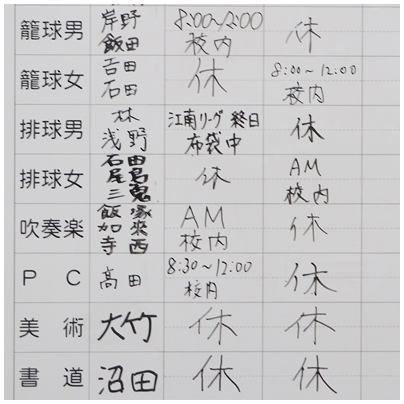 籠球男 岸野 飯田 8:00~12:00 校内 休
籠球女 吉田 石田 休 8:00~12:00 校内
排球男 林 浅野 江南リーグ 終日 布袋中 休
排球女 石田 尾島 三鬼 休 AM 校内
吹奏楽 飯塚 加來 寺西 AM 校内 休
PC 高田 8:30~12:00 校内 休
美術 大竹 休 休
書道 沼田 休 休